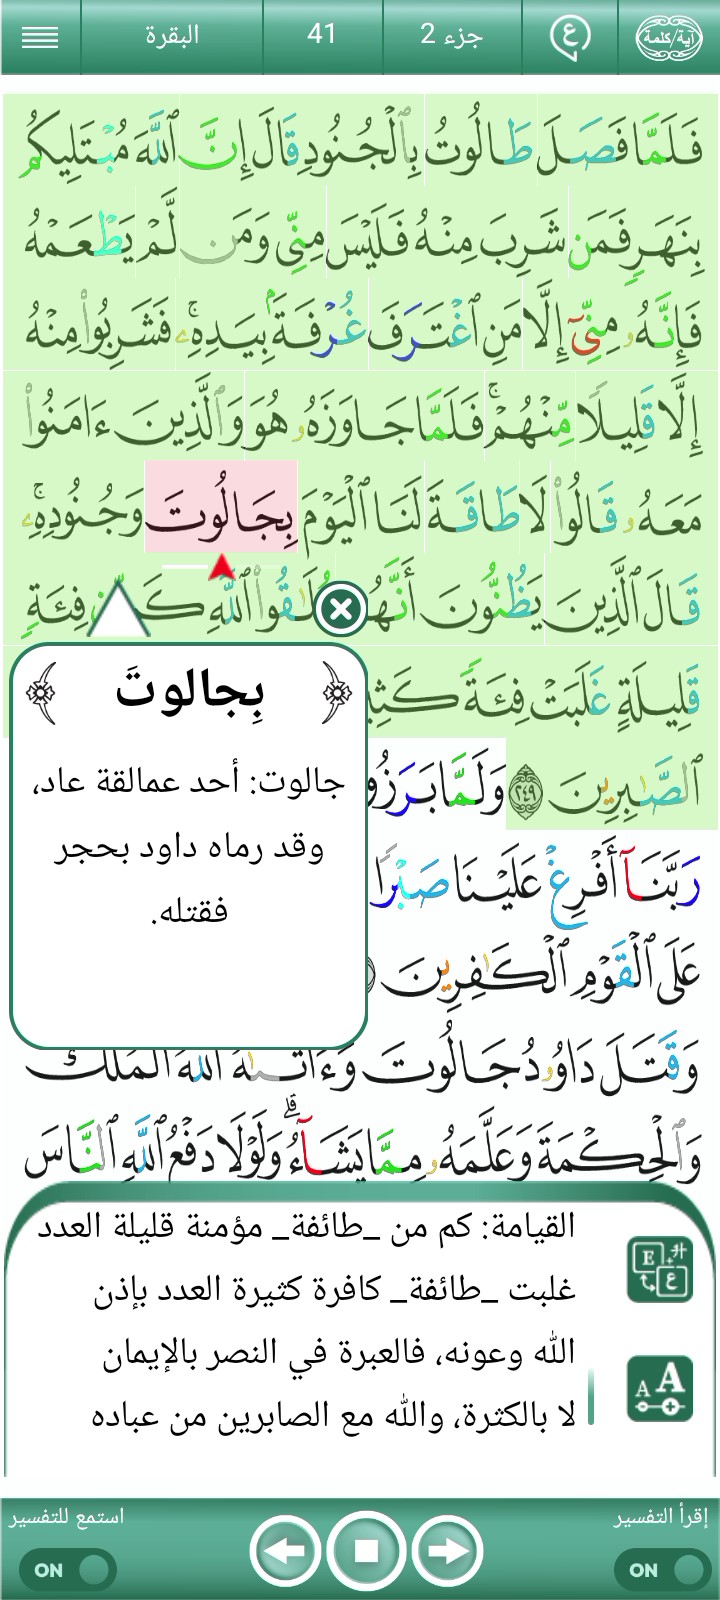 آية/كلمة ع جزء 2 41 البقرة
فَلَمَّا فَصَلَ طَالُوتُ بِٱلْجُنُودِ قَالَ إِنَّ ٱللَّهَ مُبْتَلِيكُم
بِنَهَرٍ فَمَن شَرِبَ مِنْهُ فَلَيْسَ مِنِّي وَمَن لَّمْ يَطْعَمْهُ
فَإِنَّهُۥ مِنِّيٓ إِلَّا مَنِ ٱغْتَرَفَ غُرْفَةًۢ بِيَدِهِۦۚ فَشَرِبُوا۟ مِنْهُ
إِلَّا قَلِيلًا مِّنْهُمْۚ فَلَمَّا جَاوَزَهُۥ هُوَ وَٱلَّذِينَ ءَامَنُوا۟
مَعَهُۥ قَالُوا۟ لَا طَاقَةَ لَنَا ٱلْيَوْمَ بِجَالُوتَ وَجُنُودِهِۦۚ
قَالَ ٱلَّذِينَ يَظُنُّونَ أَنَّهُم مُّلَٰقُوا۟ ٱللَّهِ كَم مِّن فِئَةٍ
قَلِيلَةٍ غَلَبَتْ فِئَةً
ٱلصَّٰبِرِينَ ٢٤٩ وَلَمَّا بَرَزُوا
رَبَّنَآ أَفْرِغْ عَلَيْنَا صَبْرًا
عَلَى ٱلْقَوْمِ ٱلْكَٰفِرِينَ
وَقَتَلَ دَاوُۥدُ جَالُوتَ وَءَاتَىٰهُ ٱللَّهُ ٱلْمُلْكَ
وَٱلْحِكْمَةَ وَعَلَّمَهُۥ مِمَّا يَشَآءُۗ وَلَوْلَا دَفْعُ ٱللَّهِ ٱلنَّاسَ
بِجالوتَ
جالوت: أحد عمالقة عاد،
وقد رماه داود بحجر
فقتله.
القيامة: كم من _طائفة_ مؤمنة قليلة العدد
غلبت _طائفة_ كافرة كثيرة العدد بإذن
الله وعونه، فالعبرة في النصر بالإيمان
لا بالكثرة، والله مع الصابرين من عباده
إقرأ التفسير استمع للتفسير
ON ON